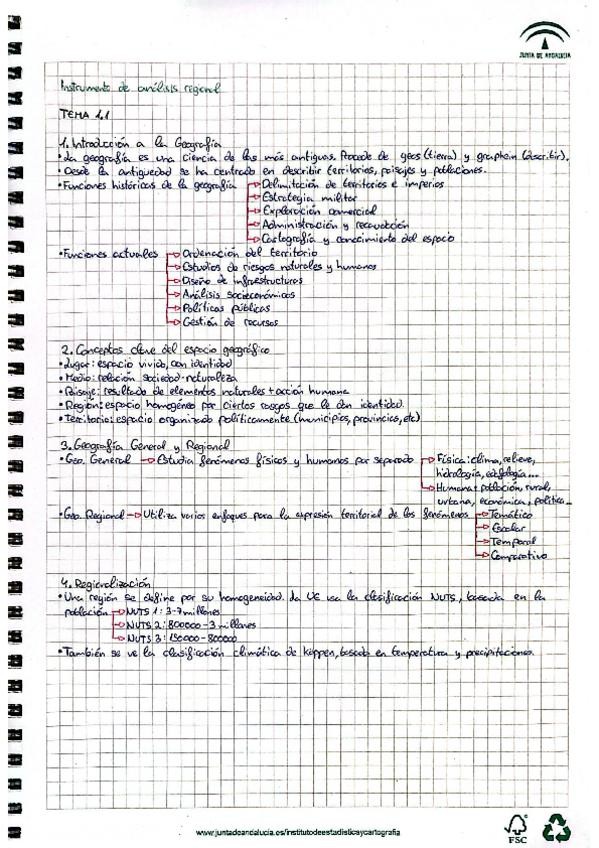 JUNTA DE ANDALUCIA
Instrumento de análisis regional
TEMA 1.1
1. Introducción a la Geografía
• La geografía es una ciencia de las más antiguas. Procede de geos (tierra) y graphein (describir).
• Desde la antigüedad se ha centrado en describir territorios, paisajes y poblaciones.
• Funciones históricas de la geografía → Delimitación de territorios e imperios
→ Estrategia militar
→ Exploración comercial
→ Administración y recaudación
→ Cartografía y conocimiento del espacio
• Funciones actuales → Ordenación del territorio
→ Estudios de riesgos naturales y humanos
→ Diseño de infraestructuras
→ Análisis socioeconómicos
→ Políticas públicas
→ Gestión de recursos
2. Conceptos clave del espacio geográfico
• Lugar: espacio vivido, con identidad
• Medio: relación sociedad-naturaleza
• Paisaje: resultado de elementos naturales + acción humana
• Región: espacio homogéneo por ciertos rasgos que le dan identidad.
• Territorio: espacio organizado políticamente (municipios, provincias, etc)
3. Geografía General y Regional
• Geo. General → Estudia fenómenos físicos y humanos por separado → Física: clima, relieve,
hidrología, edafología...
→ Humana: población, rural,
urbana, económica, política...
• Geo. Regional → Utiliza varios enfoques para la expresión territorial de los fenómenos → Temático
→ Escalar
→ Temporal
→ Comparativo
4. Regionalización
• Una región se define por su homogeneidad. La UE usa la clasificación NUTS, basada en la
población → NUTS 1: 3-7 millones
→ NUTS 2: 800000-3 millones
→ NUTS 3: 150000-800000
• También se ve la clasificación climática de Köppen, basada en temperatura y precipitaciones.
www.juntadeandalucia.es/institutodeestadisticaycartografia
FSC